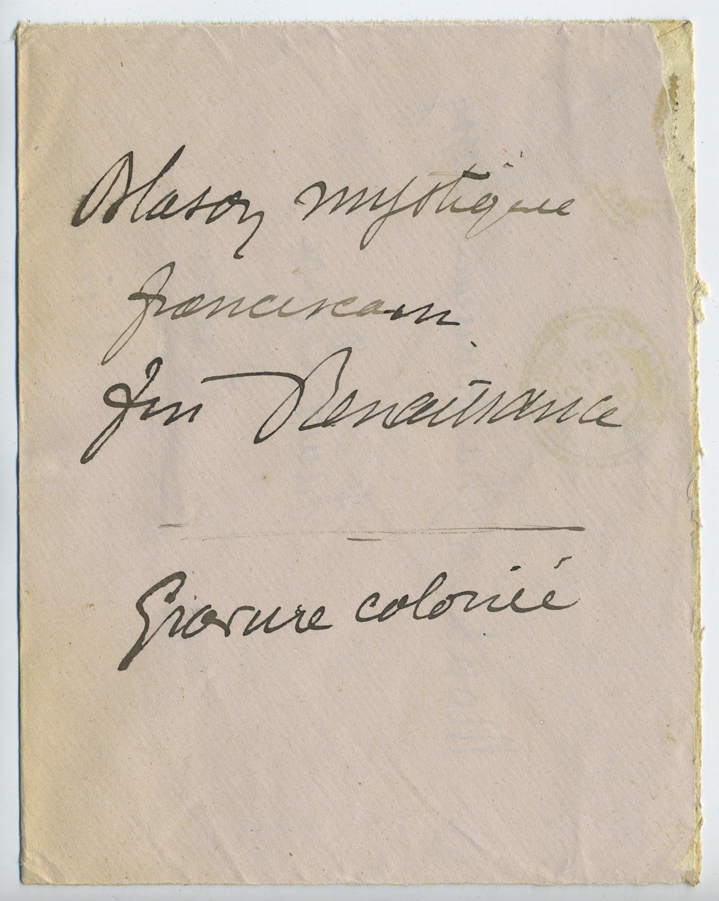 Blason mystique
franciscain
fin Renaissance
Gravure coloriée